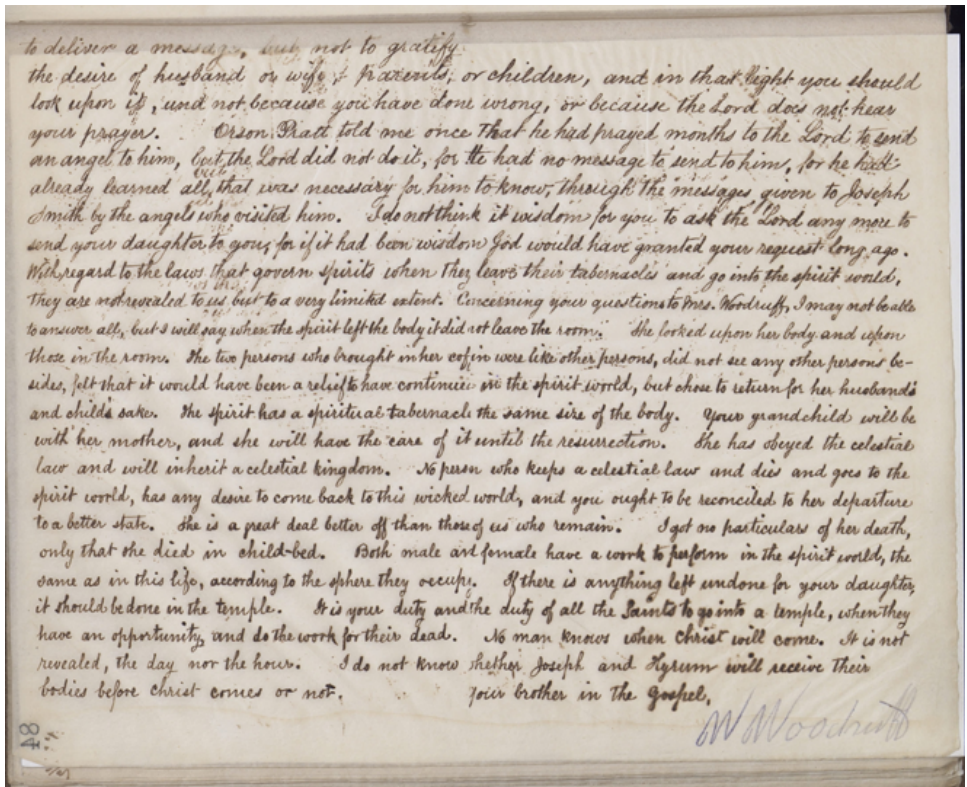 to deliver a message, but not to gratify
the desire of husband or wife, parents, or children, and in that light you should
look upon it, and not because you have done wrong, or because the Lord does not hear
your prayer. Orson Pratt told me once that he had prayed months to the Lord to send
an angel to him, but the Lord did not do it, for He had no message to send to him, for he had
already learned all, that was necessary for him to know, through the messages given to Joseph
Smith by the angels who visited him. I do not think it wisdom for you to ask the Lord any more to
send your daughter to you; for if it had been wisdom God would have granted your request long ago.
With regard to the laws that govern spirits when they leave their tabernacles and go into the spirit world,
they are not revealed to us but to a very limited extent. Concerning your questions to Mrs. Woodruff, I may not be able
to answer all, but I will say when the spirit left the body it did not leave the room. She looked upon her body and upon
those in the room. The two persons who brought in her cofin were like other persons, did not see any other persons be-
sides, felt that it would have been a relief to have continued in the spirit world, but chose to return for her husband's
and child's sake. The spirit has a spiritual tabernacle the same size of the body. Your grandchild will be
with her mother, and she will have the care of it until the resurrection. She has obeyed the celestial
law and will inherit a celestial kingdom. No person who keeps a celestial law and dies and goes to the
spirit world, has any desire to come back to this wicked world, and you ought to be reconciled to her departure
to a better state. She is a great deal better off than those of us who remain. I got no particulars of her death,
only that she died in child-bed. Both male and female have a work to perform in the spirit world, the
same as in this life, according to the sphere they occupy. If there is anything left undone for your daughter,
it should be done in the temple. It is your duty and the duty of all the Saints to go into a temple, when they
have an opportunity, and do the work for their dead. No man knows when Christ will come. It is not
revealed, the day nor the hour. I do not know whether Joseph and Hyrum will receive their
bodies before Christ comes or not. Your brother in the Gospel,
W Woodruff
48